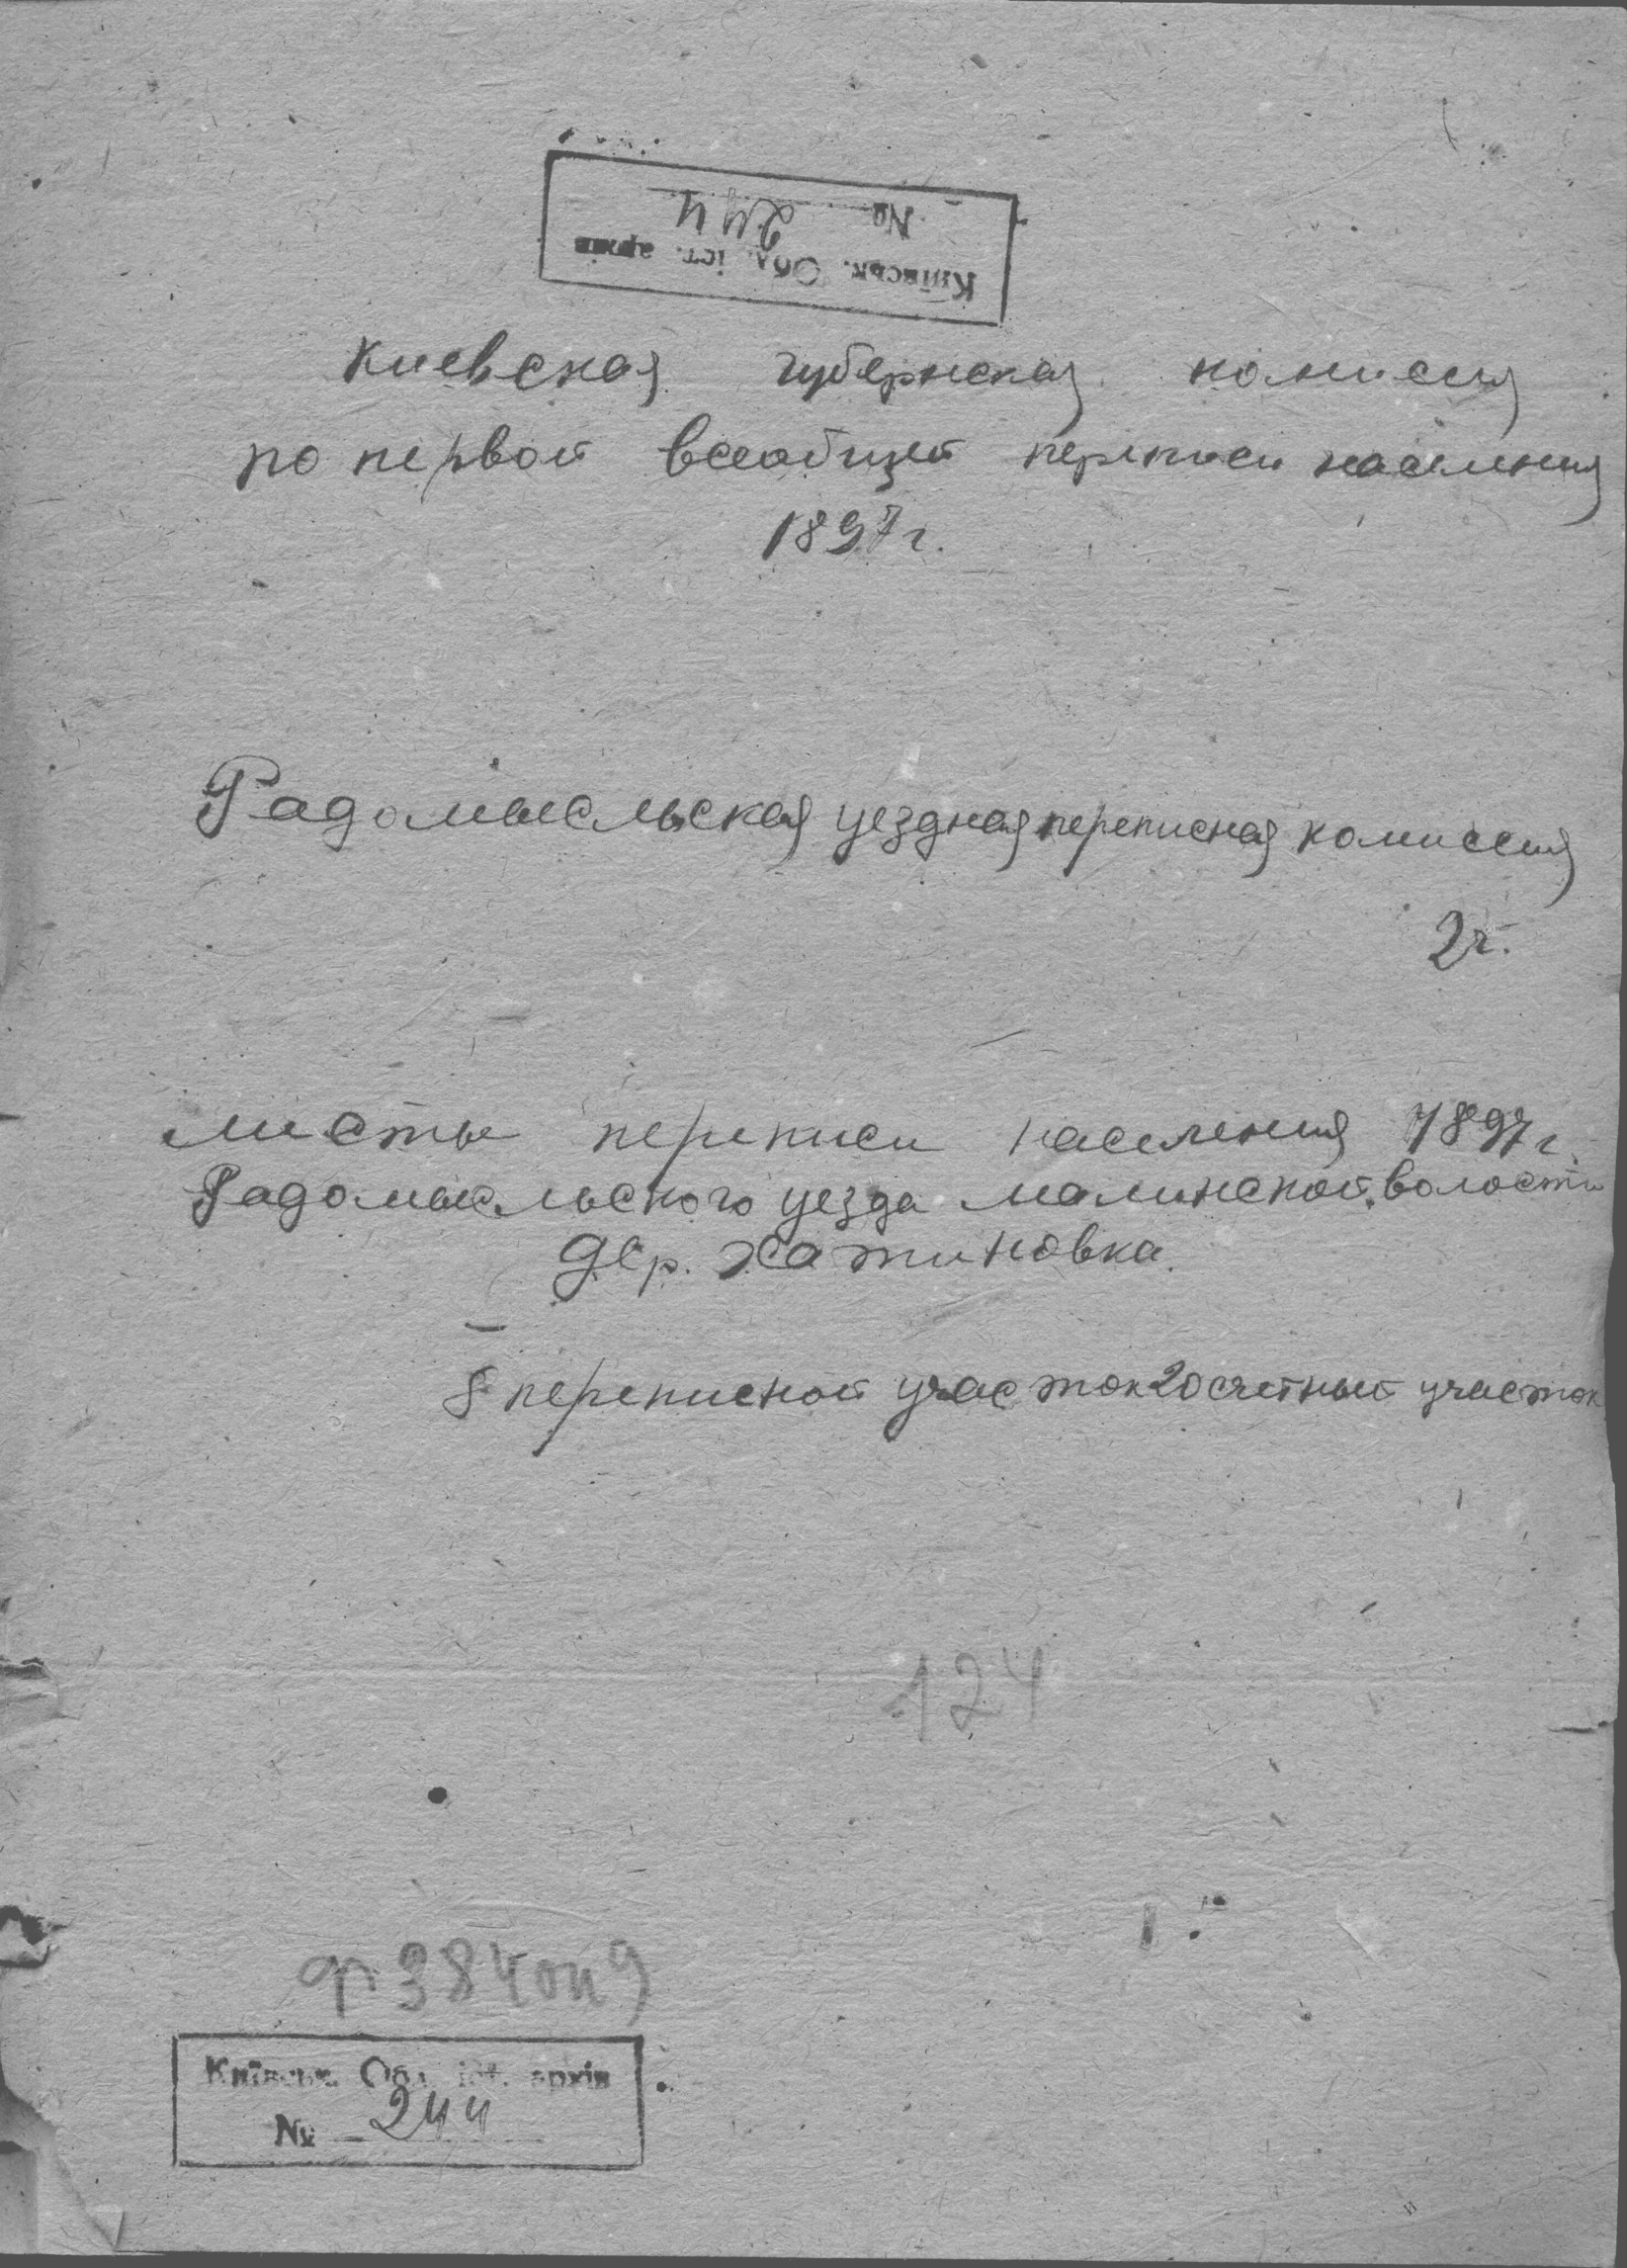 № 244
Київськ. Обл. іст. архів
Киевская губернская комисия
по первой всеобщей переписи населения
1897 г.
Радомысльская уездная переписная комиссия
2 г.
Листы переписи населения 1897 г.
Радомысльского уезда Малинской волости
дер. Хатиновка.
8 переписной участок 20 счетный участок
124
ф 384 оп 9
Київськ. Обл. іст. архів
№ 244